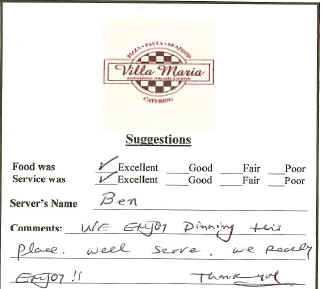 PIZZA • PASTA • SEAFOOD
Villa Maria
CATERING
Suggestions
Food was ✓ Excellent ___Good ___Fair ___Poor
Service was ✓ Excellent ___Good ___Fair ___Poor
Server's Name Ben
Comments: WE ENJOY Dinning this
place. well serve. we really
ENJOY !! Thank you